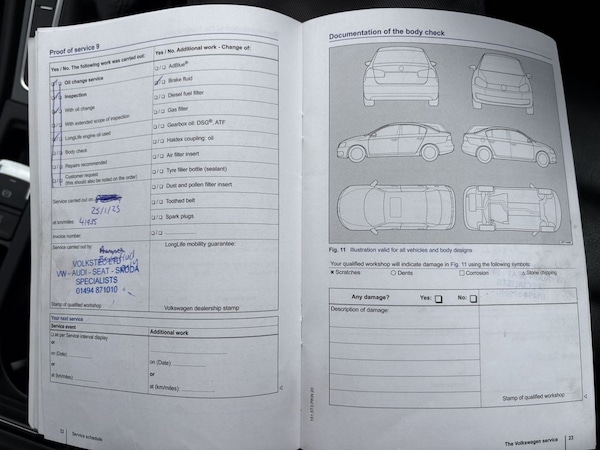 Proof of service 9
Yes / No. The following work was carried out:
Oil change service
Inspection
With oil change
With extended scope of inspection
LongLife engine oil used
Body check
Repairs recommended
Customer request
(this should also be noted on the order)
Service carried out on
25/1/23
at km/miles:
Invoice number:
Service carried out by:
VOLKSTEC LTD
VW - AUDI - SEAT - SKODA
SPECIALISTS
01494 871010
Stamp of qualified workshop
Yes / No. Additional work - Change of:
AdBlue®
Brake fluid
Diesel fuel filter
Gas filter
Gearbox oil: DSG®, ATF
Haldex coupling: oil
Air filter insert
Tyre filler bottle (sealant)
Dust and pollen filter insert
Toothed belt
Spark plugs
LongLife mobility guarantee:
Volkswagen dealership stamp
Your next service
Service event
as per Service interval display
or
on (Date)
or
at (km/miles)
Additional work
on (Date)
or
at (km/miles)
Service schedule
Documentation of the body check
Fig. 11 Illustration valid for all vehicles and body designs
Your qualified workshop will indicate damage in Fig. 11 using the following symbols:
× Scratches ○ Dents □ Corrosion △ Stone chipping
Any damage? Yes: No:
Description of damage:
Stamp of qualified workshop
The Volkswagen service 23